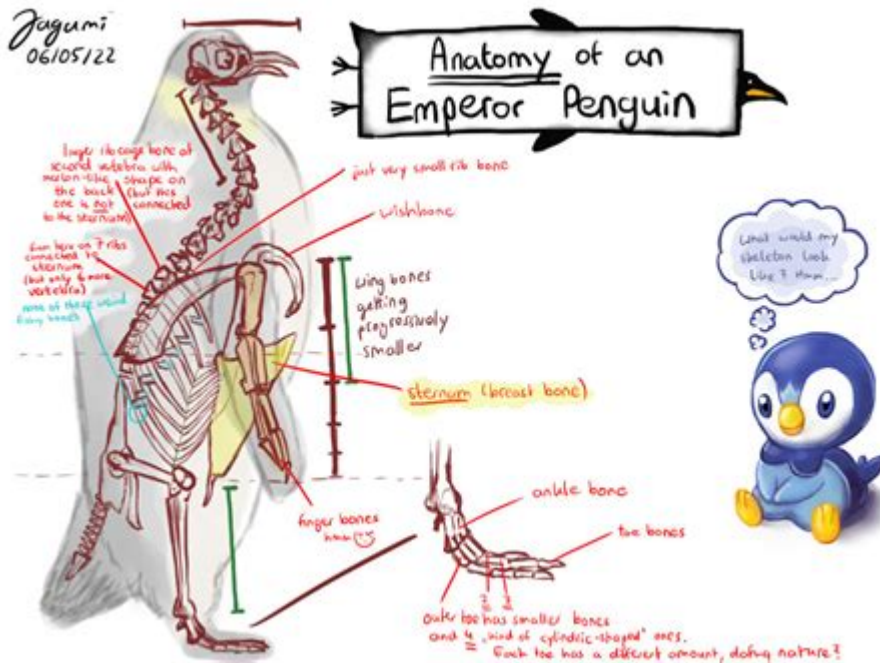 Jagumi
06/05/22
Anatomy of an
Emperor Penguin
larger ribcage bone of
second vertebra with
shape on
the back (but this
one is not connected
to the sternum)
from here on 7 ribs
connected to
sternum
(but only 6 more
vertebra)
none of these weird
bones
just very small rib bone
wishbone
wing bones
getting
progressively
smaller
sternum (breast bone)
finger bones
ankle bone
toe bones
outer toe has smaller bones
and 4 "kind of cylindric-shaped" ones.
Each toe has a different amount, nature?
What would my
skeleton look
like? Hmm...